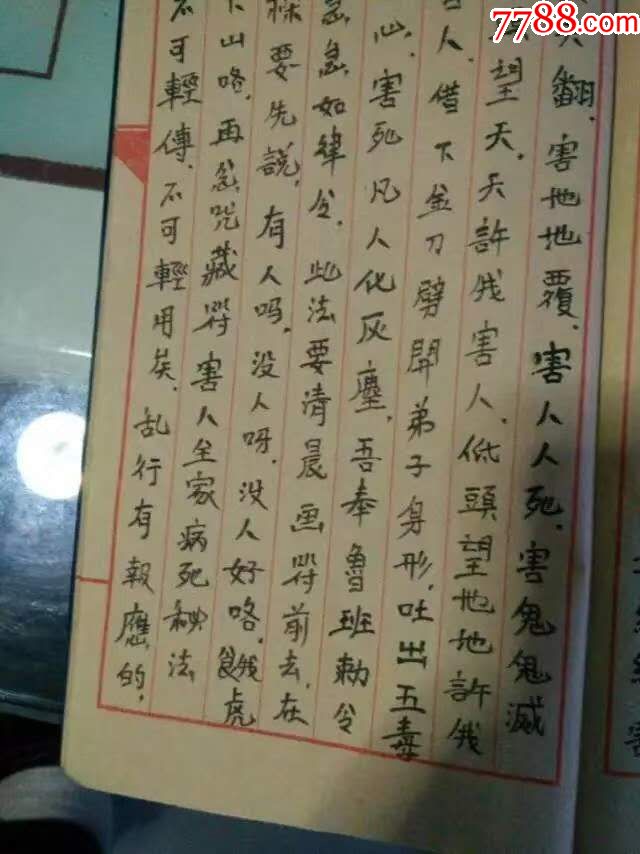 7788.com
翻、害地地覆、害人人死、害鬼鬼滅
望天、天許我害人、低頭望地地許我
人、借下金刀劈開弟子身形、吐出五毒
心、害死凡人化灰塵、吾奉魯班勅令
急急如律令、此法要清晨画符前去、在
要先說、有人吗、没人呀、没人好咯、餓虎
下山咯、再念咒藏符害人全家病死秘法
不可輕傳、不可輕用矣、乱行有報應的、
害